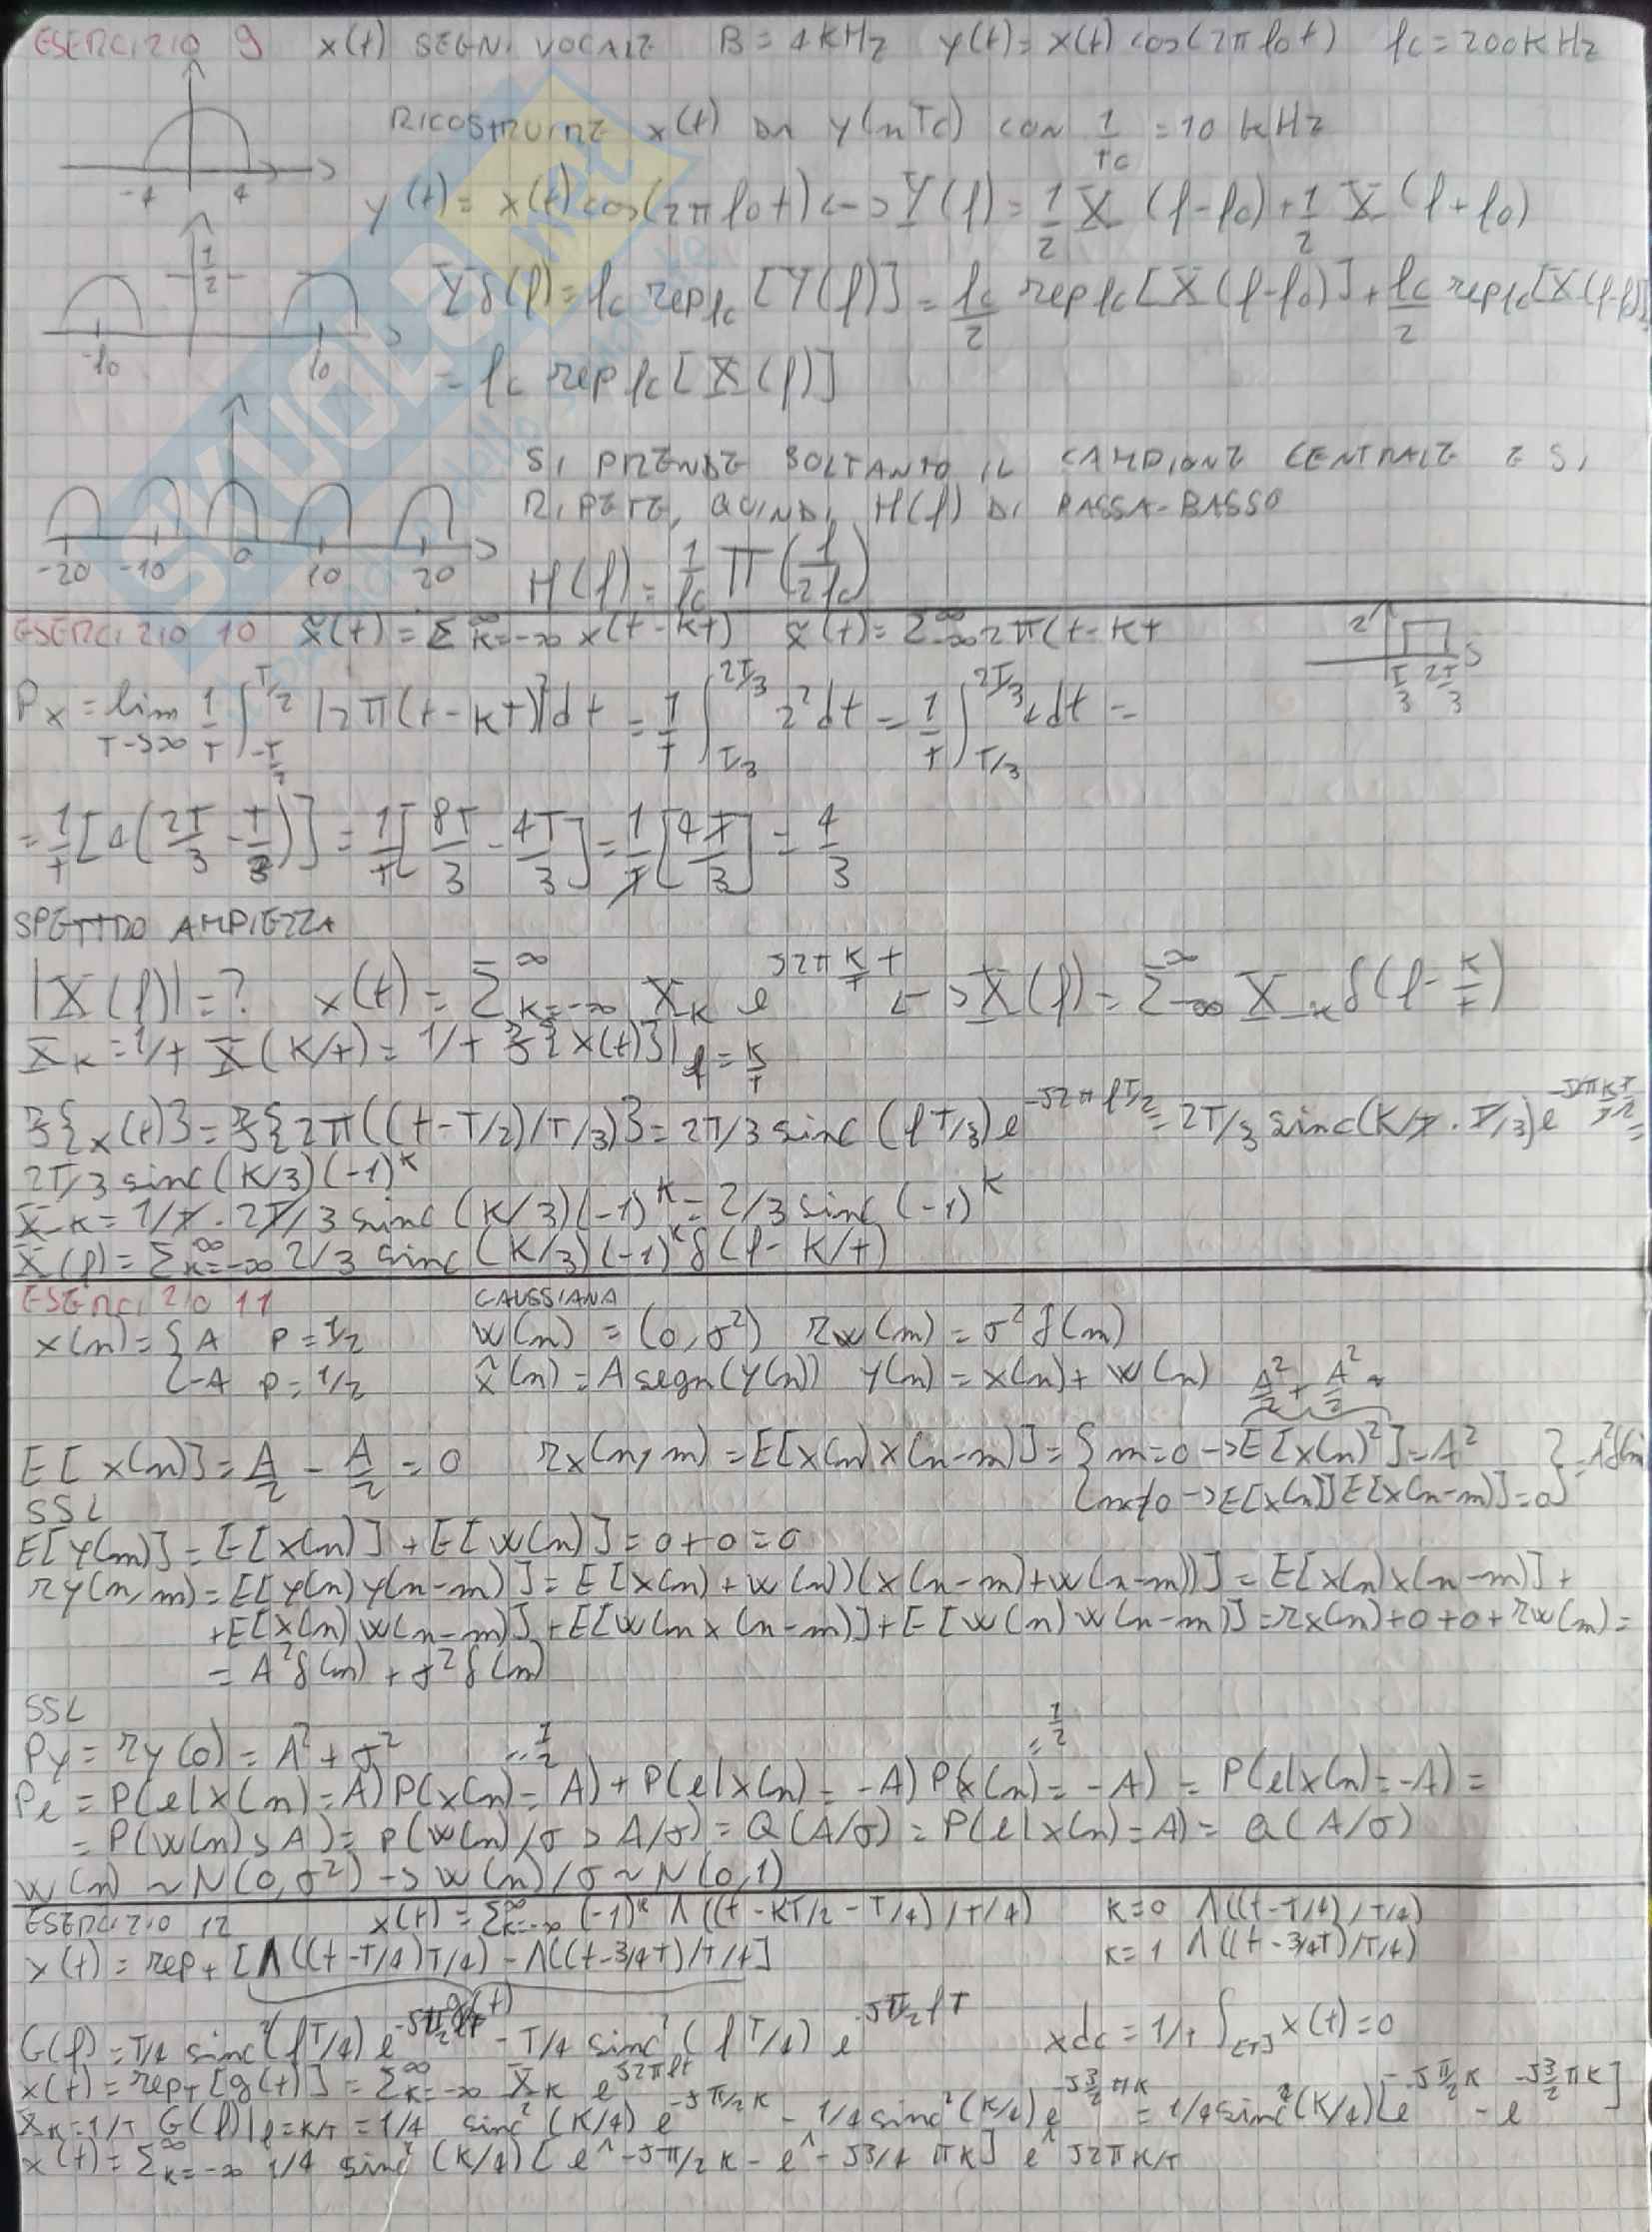 ESERCIZIO 9 x(t) SEGN. VOCALE B = 4KHz y(t) = x(t) cos(2πf0t) fc = 200KHz
RICOSTRUIRE x(t) DA y(nTc) CON 1/Tc = 10 KHz
-4 4
y(t) = x(t) cos(2πf0t) <-> Y(f) = 1/2 X (f-f0) + 1/2 X (f+f0)
1/2
-f0 f0
Yδ(f) = fc repfc [Y(f)] = fc/2 repfc [X(f-f0)] + fc/2 repfc[X(f-f0)]
= fc repfc [X(f)]
SI PRENDE SOLTANTO IL CAMPIONE CENTRALE E SI
RIPETE, QUINDI H(f) DI PASSA-BASSO
-20 -10 0 10 20
H(f) = 1/fc Π (f/2fc)
ESERCIZIO 10 x̃(t) = Σ∞k=-∞ x(t-kt) x̃(t) = Σ∞-∞ 2π(t-kt
2 T/3 2T/3
Px = lim T->∞ 1/T ∫T/2 -T/2 |2π(t-kT)|²dt = 1/T ∫2T/3 T/3 2²dt = 1/T ∫2T/3 T/3 4dt =
= 1/T [4(2T/3 - T/3)] = 1/T [8T/3 - 4T/3] = 1/T [4T/3] = 4/3
SPETTRO AMPIEZZA
|X(f)| = ? x(t) = Σ∞k=-∞ Xk e J2π k/T t <-> X(f) = Σ∞-∞ Xk δ(f - k/T)
Xk = 1/T X(k/T) = 1/T F{x(t)}| f = k/T
F{x(t)} = F{2π((t-T/2)/T/3)} = 2T/3 sinc (fT/3) e -J2πfT/2 = 2T/3 sinc(k/T · T/3) e -J2πk/T T/2 =
2T/3 sinc(k/3)(-1)^k
Xk = 1/T · 2T/3 sinc (k/3)(-1)^k = 2/3 sinc (-1)^k
X(f) = Σ∞k=-∞ 2/3 sinc (k/3)(-1)^k δ(f - k/T)
ESERCIZIO 11 GAUSSIANA
x(n) = { A P = 1/2 w(n) = (0, σ²) rw(m) = σ²δ(m)
{ -A P = 1/2 x̂(n) = A segn(y(n)) y(n) = x(n) + w(n) A²/2 + A²/2 =
E[x(n)] = A/2 - A/2 = 0 rx(n,m) = E[x(n)x(n-m)] = { m=0 -> E[x(n)²] = A² } = A²δ(m)
{ m≠0 -> E[x(n)]E[x(n-m)] = 0 }
SSL
E[y(m)] = E[x(n)] + E[w(n)] = 0 + 0 = 0
ry(n,m) = E[y(n)y(n-m)] = E[x(n)+w(n))(x(n-m)+w(n-m))] = E[x(n)x(n-m)] +
+ E[x(n)w(n-m)] + E[w(n x(n-m)] + E[w(n)w(n-m)] = rx(n) + 0 + 0 + rw(m) =
= A²δ(m) + σ²δ(m)
SSL
Py = ry(0) = A² + σ² = 1/2 = 1/2
Pe = P(e|x(n) = A) P(x(n) = A) + P(e|x(n) = -A) P(x(n) = -A) = P(e|x(n) = -A) =
= P(w(n) > A) = P(w(n)/σ > A/σ) = Q(A/σ) = P(e|x(n) = A) = Q(A/σ)
w(n) ~ N(0, σ²) -> w(n)/σ ~ N(0,1)
ESERCIZIO 12 x(t) = Σ∞k=-∞ (-1)^k Λ((t - kT/2 - T/4)/T/4) k=0 Λ((t-T/4)/T/4)
x(t) = repT [Λ((t-T/4)T/4) - Λ((t-3/4T)/T/4] k=1 Λ((t-3/4T)/T/4)
g(t)
G(f) = T/4 sinc²(fT/4) e -Jπ/2fT - T/4 sinc²(fT/4) e -Jπ/2 fT xdc = 1/T ∫[T] x(t) = 0
x(t) = repT [g(t)] = Σ∞k=-∞ Xk e J2πft
Xk = 1/T G(f)|f=k/T = 1/4 sinc²(k/4) e -Jπ/2k - 1/4 sinc²(k/4) e -J3/2πk = 1/4 sinc²(k/4)[e -Jπ/2k - e -J3/2πk]
x(t) = Σ∞k=-∞ 1/4 sinc²(k/4)[e^-Jπ/2k - e^-J3/4πk] e^J2πk/T